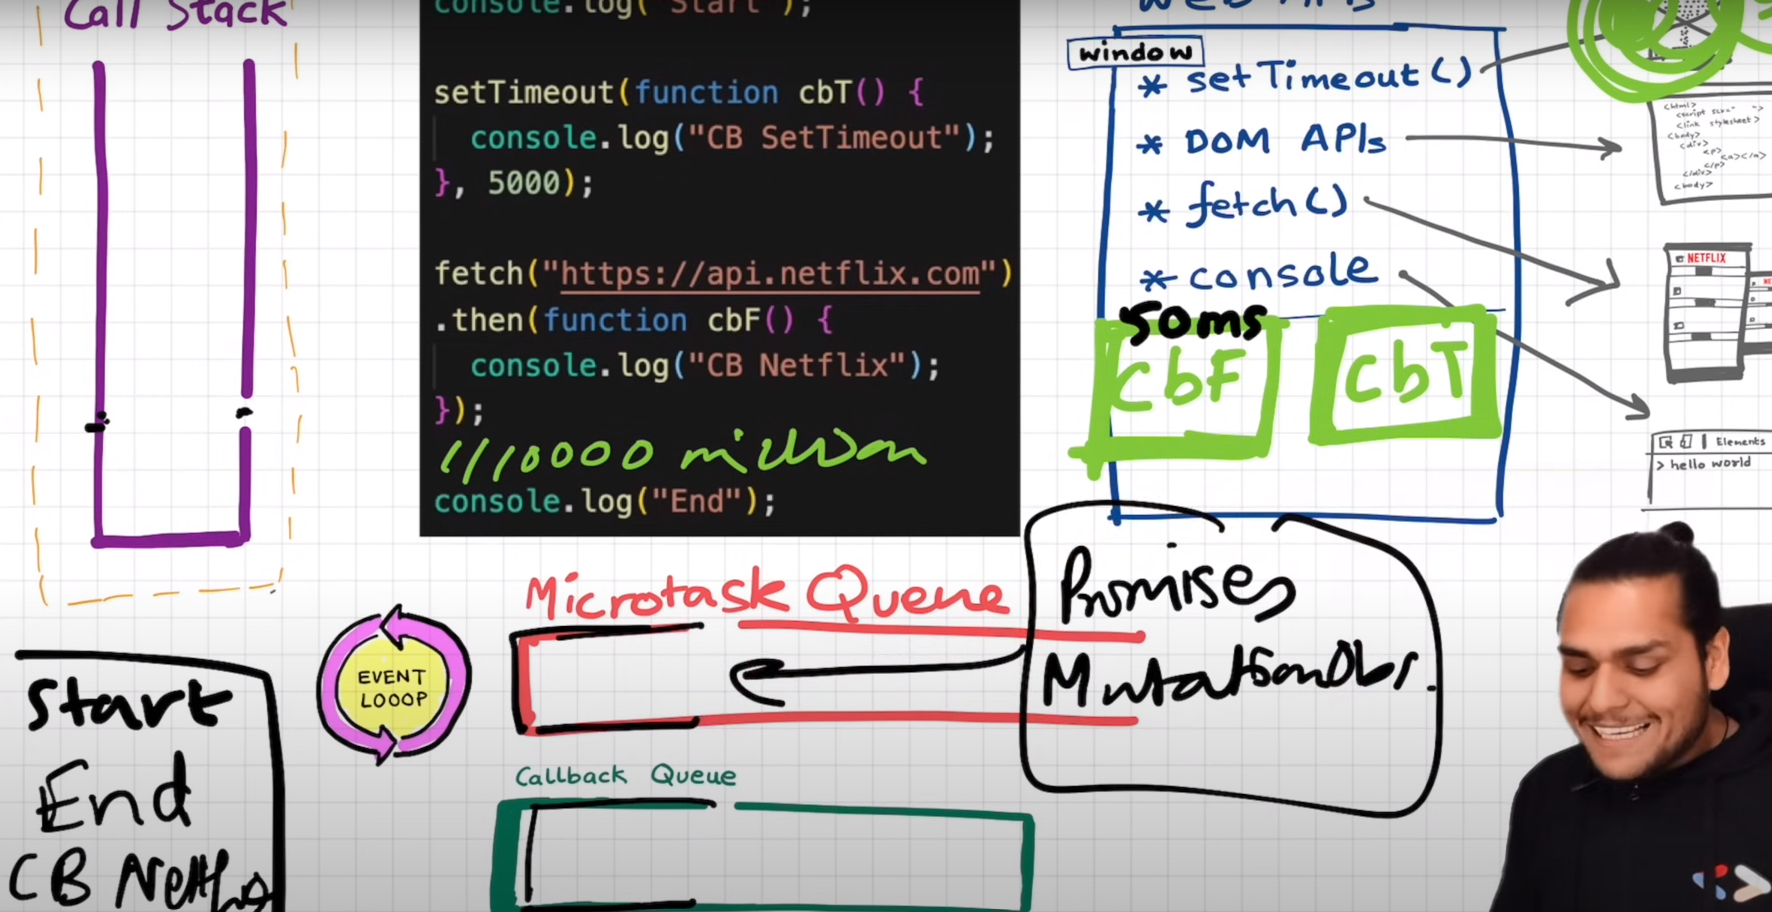 Call Stack
console.log("Start");
setTimeout(function cbT() {
console.log("CB SetTimeout");
}, 5000);
fetch("https://api.netflix.com")
.then(function cbF() {
console.log("CB Netflix");
});
//10000 million
console.log("End");
Web APIs
window
* setTimeout()
* DOM APIs
* fetch()
* console
50ms
CbF
CbT
<html>
<body>
<div>
<p>
<a></a>
</p>
</div>
<body>
NETFLIX
Elements
> hello world
Microtask Queue
Promises
MutationObs.
EVENT
LOOOP
Callback Queue
Start
End
CB